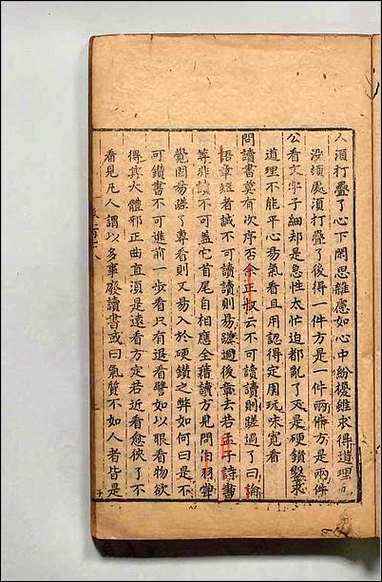 人須打疊了心下閑思雜慮如心中紛擾雖求得道理也
沒頓處須打疊了後得一件方是一件兩件方是兩件
公看文字子細却是急性太忙迫都亂了又是硬鑽鑿求
道理不能平心易氣看且用認得定用玩味寬看
問讀書莫有次序否余正叔云不可讀讀則蹉過了曰論
語章短者誠不可讀讀則易蹉過後章去若孟子詩書
等非讀不可蓋它首尾自相應全藉讀方見問伯羽嘗
覺固易蹉了專看則又易入於硬鑽之弊如何曰是不
可鑽書不可進前一步看只有退看譬如以眼看物欲
得其大體邪正曲直須是遠看方定若近看愈狹了不
看見凡人謂以多事廢讀書或曰氣質不如人者皆是